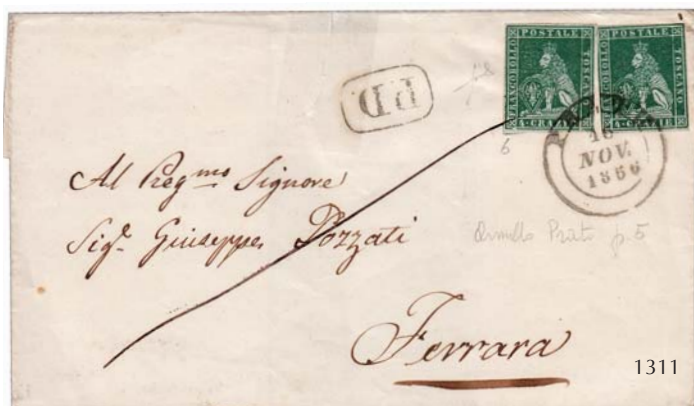 FRANCOBOLLO POSTALE TOSCANO
4·CRAZIE
FRANCOBOLLO POSTALE TOSCANO
4·CRAZIE
P.D
6
16
NOV.
1856
Al Preg.mo Signore
Sig.r Giuseppe Pozzati
Annullo Prato p. 5
Ferrara
1311